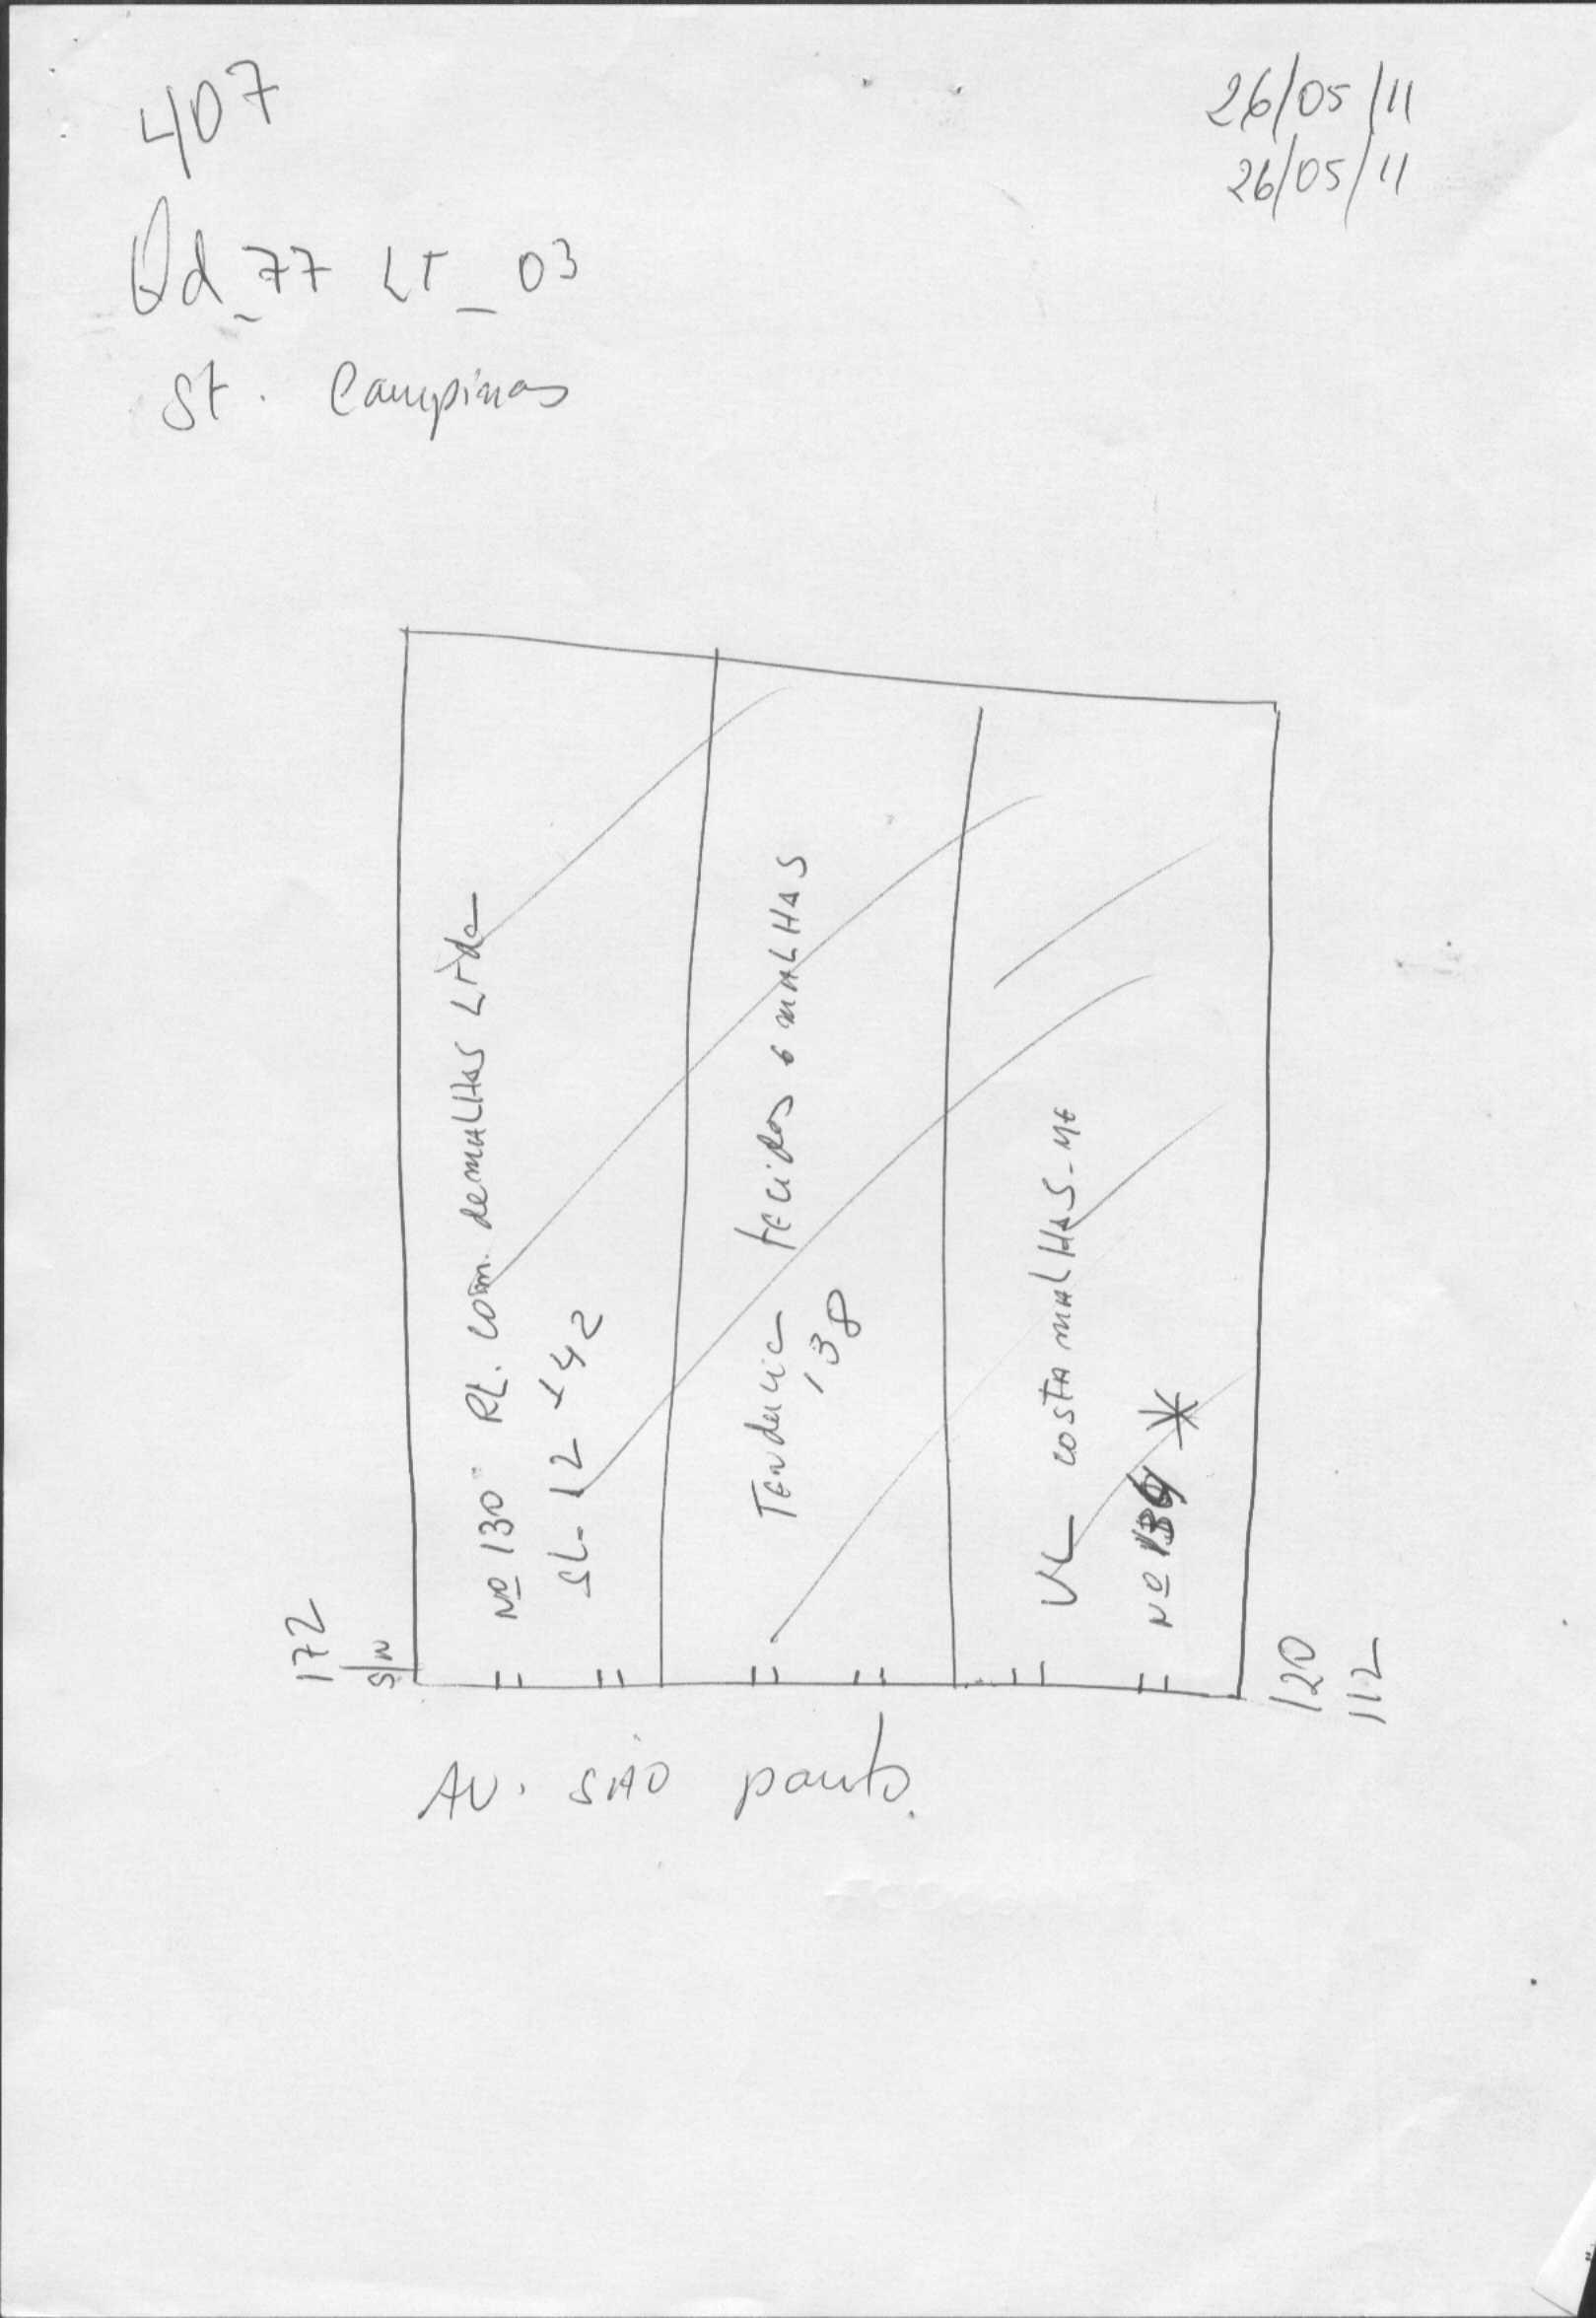 407
26/05/11
26/05/11
Qd_77 LT_03
St. Campinas
Nº 130 RL. com. de malhas Ltda
SL-12
Tendencia tecidos e malhas
138
VL costa malhas-ME
Nº
172
S/N
120
112
AV. SÃO paulo.